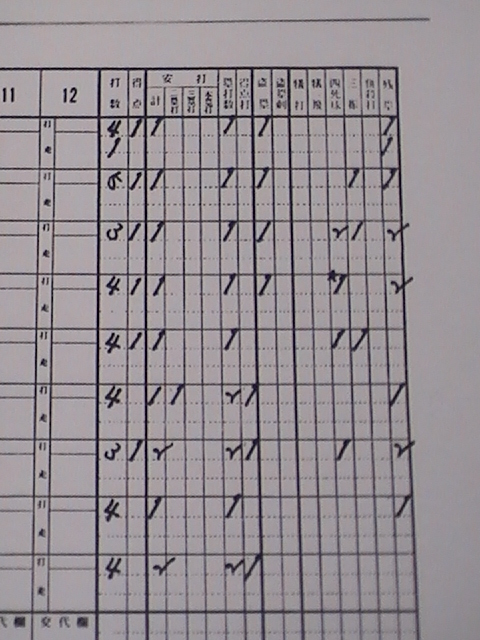 11 12 打数 得点 安打 計 二塁打 三塁打 本塁打 塁打数 得点打 盗塁 盗塁刺 犠打 犠飛 四死球 三振 併殺打 残塁
打 4 1 1 1 1 1
走 1 1
打 5 1 1 1 1 1 1
走
打 3 1 1 1 1 2 1 2
走
打 4 1 1 1 1 *1 2
走
打 4 1 1 1 1 1
走
打 4 1 1 2 1 1
走
打 3 1 2 2 1 1 2
走
打 4 1 1 1
走
打 4 2 2 1
走
代欄 交代欄